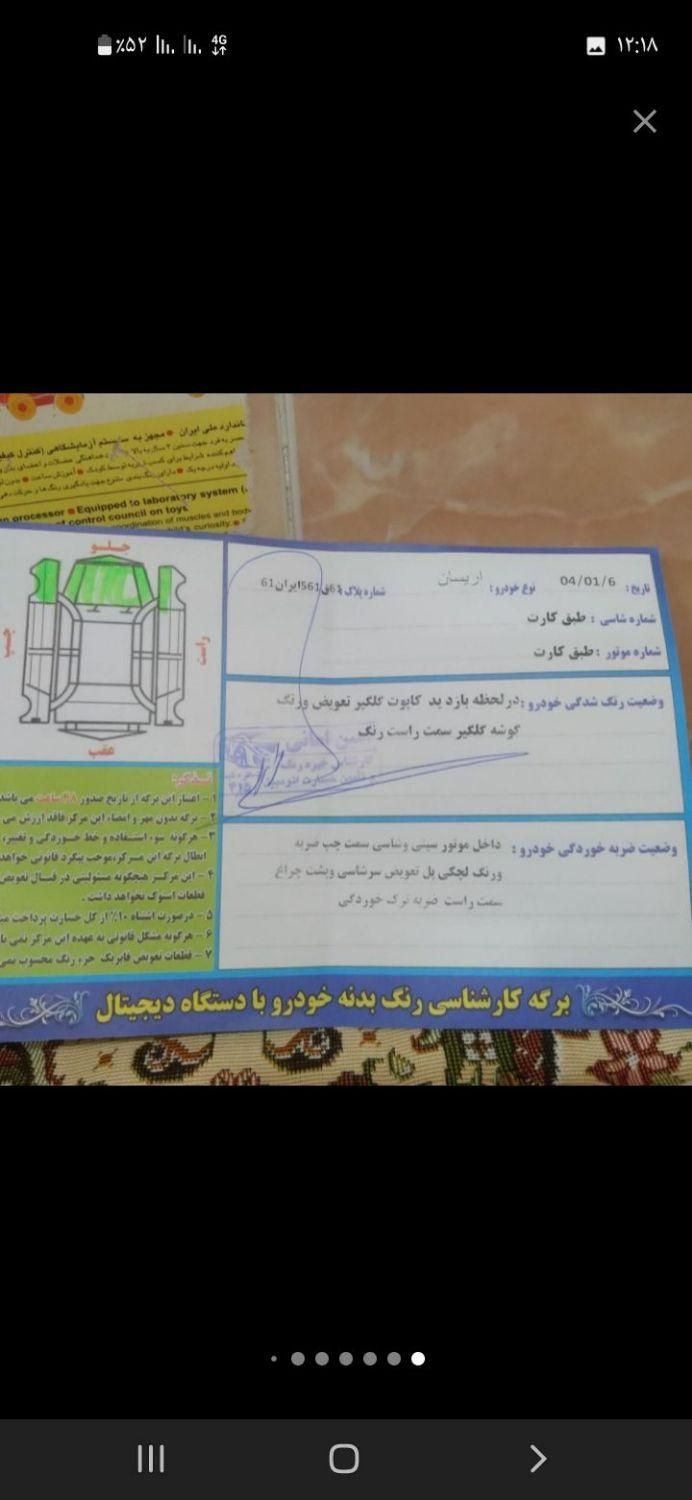 ٪۵۲ 4G ۱۲:۱۸
استاندارد ملی ایران ● مجهز به سیستم آزمایشگاهی (کنترل کیفی
● Equipped to laboratory system (
of control council on toys
جلو
چپ
راست
عقب
تاریخ: 04/01/6 نوع خودرو: اریسان شماره پلاک: 61ق561ایران61
شماره شاسی : طبق کارت
شماره موتور : طبق کارت
وضعیت رنگ شدگی خودرو : در لحظه بازدید کاپوت گلگیر تعویض ورنگ
گوشه گلگیر سمت راست رنگ
وضعیت ضربه خوردگی خودرو : داخل موتور سینی وشاسی سمت چپ ضربه
ورنگ لچکی پل تعویض سرشاسی وپشت چراغ
سمت راست ضربه ترک خوردگی
تذکر:
۱- اعتبار این برگه از تاریخ صدور ۴۸ ساعت می باشد
۲- برگه بدون مهر و امضاء این مرکز فاقد ارزش می
۳- هرگونه سوء استفاده و خط خوردگی و تغییر،
ابطال برگه این مرکز،موجب پیگرد قانونی خواهد
۴- این مرکز هیچگونه مسئولیتی در قبال تعویض
قطعات استوک نخواهد داشت .
۵- درصورت اشتباه ۱۰٪ از کل خسارت پرداخت
۶- هرگونه مشکل قانونی به عهده این مرکز نمی
۷- قطعات تعویض فابریک جزء رنگ محسوب نمی
برگه کارشناسی رنگ بدنه خودرو با دستگاه دیجیتال